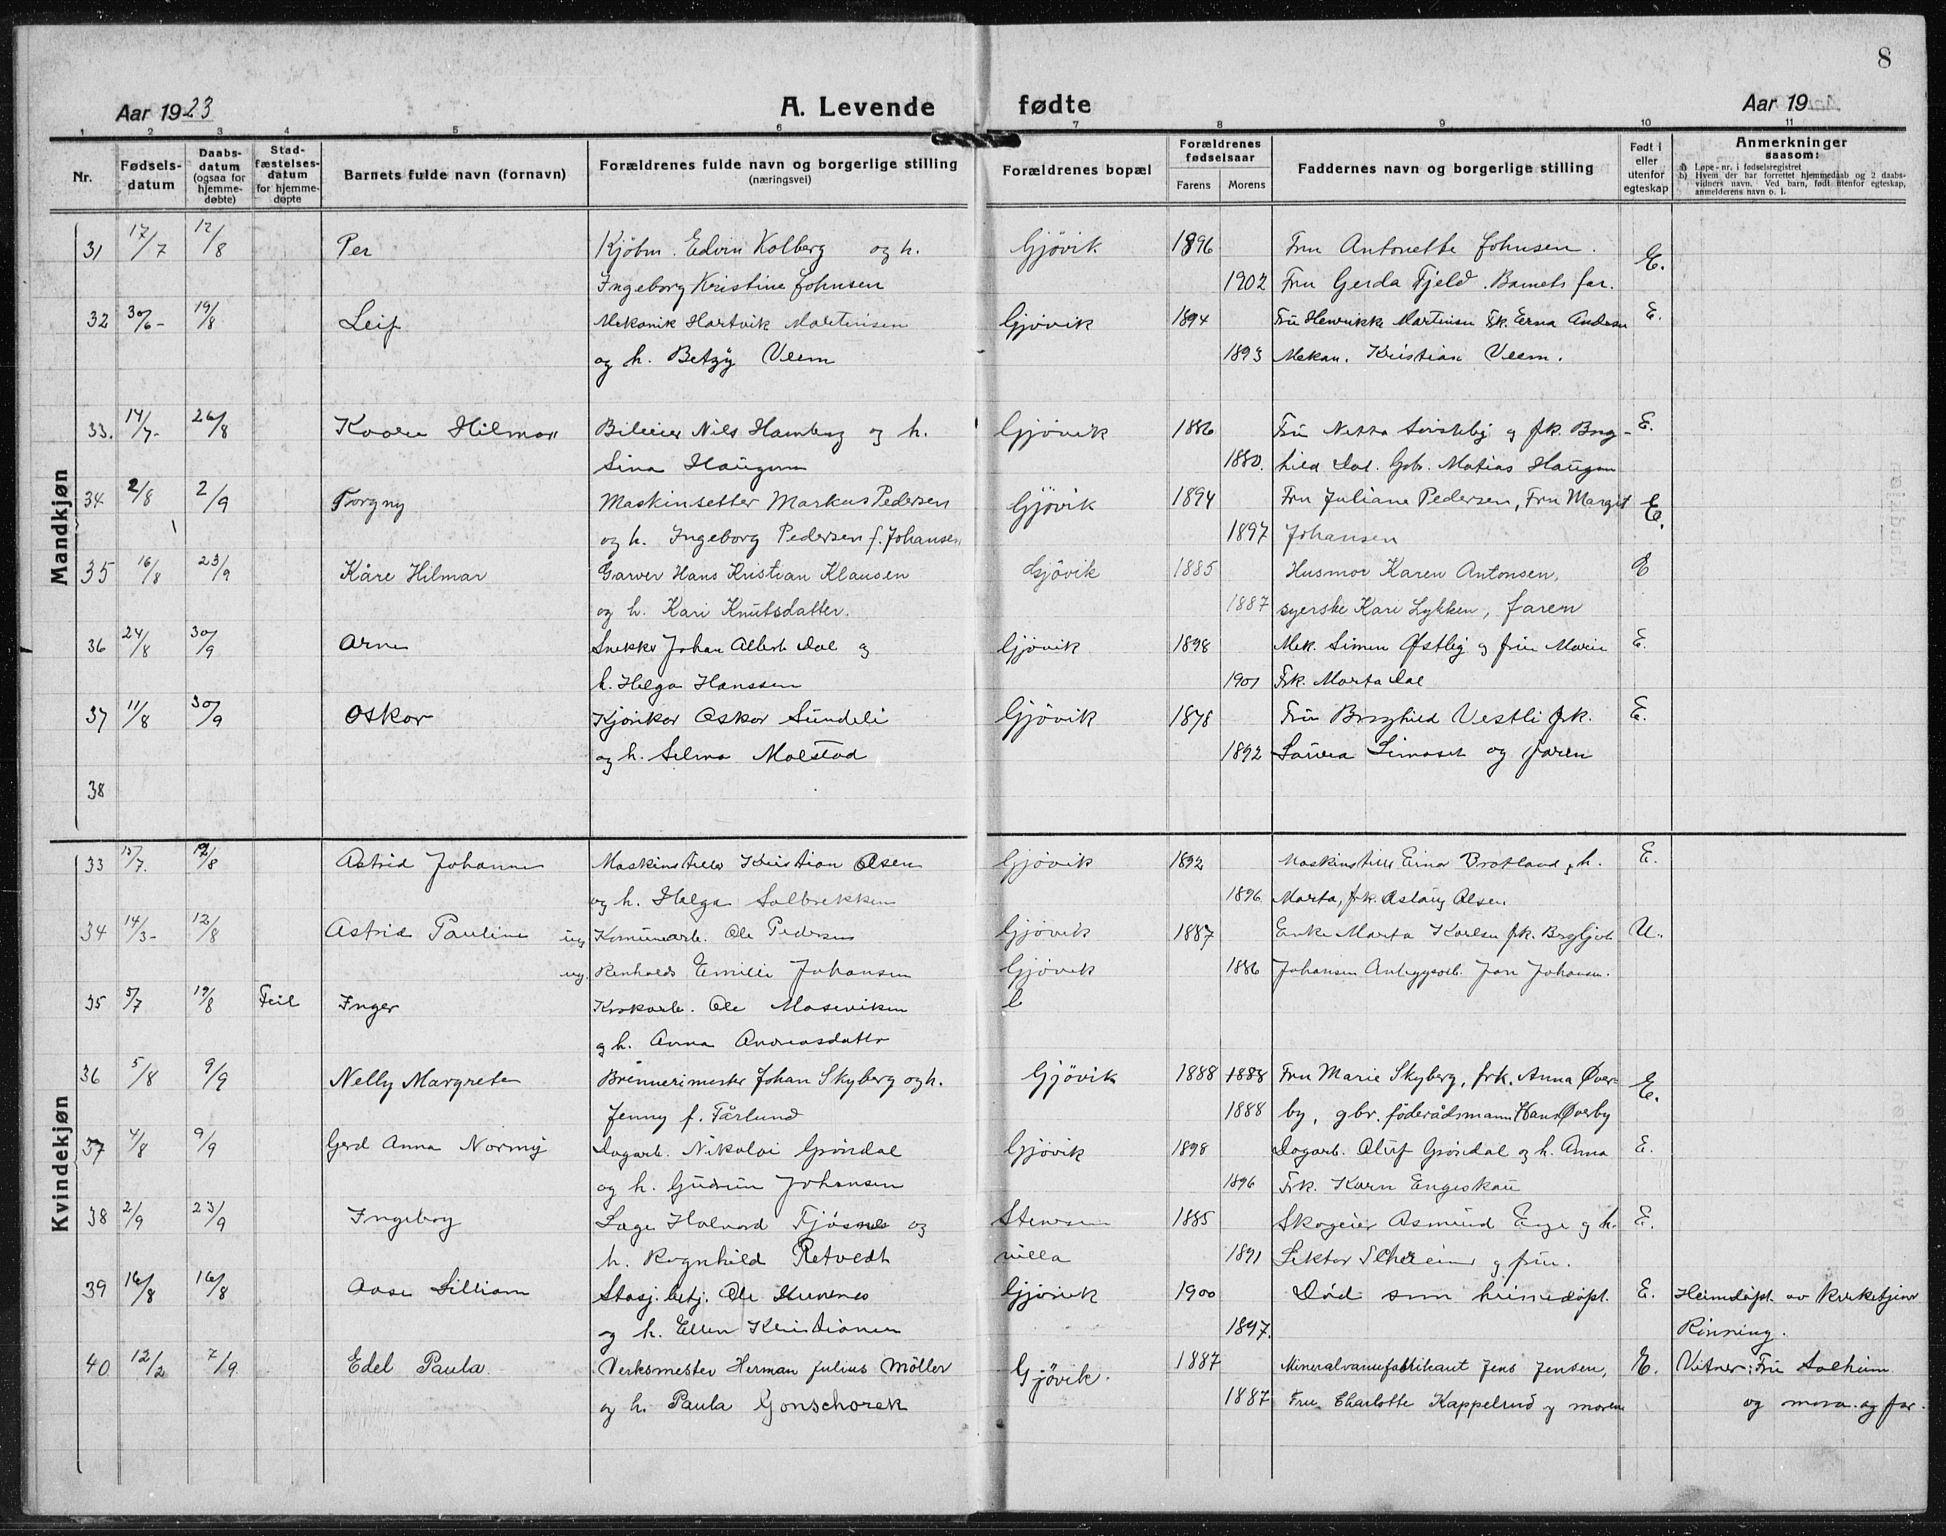 8
Aar 1923
A. Levende fødte
Aar 19
1 2 3 4 5 6 7 8 9 10 11
Nr.
Fødsels-
datum
Daabs-
datum
(ogsaa for
hjemme-
døbte)
Stad-
fæstelses-
datum
for hjemme-
døpte
Barnets fulde navn (fornavn)
Forældrenes fulde navn og borgerlige stilling
(næringsvei)
Forældrenes bopæl
Forældrenes
fødselsaar
Farens Morens
Faddernes navn og borgerlige stilling
Født i
eller
utenfor
egteskap
Anmerkninger
saasom:
a) Løpe-nr. i fødselsregistret
b) Hvem der har forrettet hjemmedaab og 2 daabs-
vidners navn. Ved barn, født utenfor egteskap,
anmelderens navn o. l.
Mandkjøn
31 17/7 12/8 Per Kjøbm. Edvin Kolberg og h. Gjøvik 1896 Fru Antonette Johnsen. E.
Ingeborg Kristine Johnsen 1902 Fru Gerda Fjeld. Barnets far.
32 30/6- 19/8 Leif Mekanik Hartvik Martinsen Gjøvik 1894 Fru Henrikke Martinsen Frk. Erna Andersen E.
og h. Betzy Veem 1893 Mekan. Kristian Veem.
33. 14/7- 26/8 Kaare Hilmar Bileier Nils Hamberg og h. Gjøvik 1886 Fru Netta og frk. Borg- E.
Sina Haugom 1880. hild Dal. Gbr. Matias Haugom
34 2/8 2/9 Torgny Maskinsetter Markus Pedersen Gjøvik 1894 Fru Juliane Pedersen, Fru Margit E.
og h. Ingeborg Pedersen f. Johansen 1897 Johansen
35 16/8 23/9 Kåre Hilmar Garver Hans Kristian Klausen Gjøvik 1885 Husmor Karen Antonsen, E
og h. Kari Knutsdatter. 1887 syerske Kari Lykken, faren
36 24/8 30/9 Arne Snekker Johan Albert Dal og Gjøvik 1898 Mek. Simen Østbig og fru Marie E.
h. Helga Hanssen 1901 Frk. Marta Dal
37 11/8 30/9 Oskar Kjørekar Oskar Sundeli Gjøvik 1878 Fru Borghild Vestli frk. E.
og h. Selma Malstad 1892 Laura Simaset og faren
38
Kvindekjøn
33 15/7. 12/8 Astrid Johanne Maskinstiller Kristian Olsen Gjøvik 1892 Maskinstiller Einar Bratland og h. E.
og h. Helga Solbrekken 1896 Marta, frk. Aslaug Olsen
34 14/3- 12/8 Astrid Pauline ug. Komunearb. Ole Pedersen Gjøvik 1887 Enke Marta Karlsen frk. Bergljot U.
ug. Renholds Emilie Johansen Gjøvik 1886 Johansen Anleggsarb. Jon Johansen.
35 5/7 19/8 Feil Inger Krokarb. Ole Maseviken
og h. Anna Andreasdatter
36 5/8 9/9 Nelly Margrete Brennerimester Johan Skyberg og h. Gjøvik 1888 1888 Fru Marie Skyberg, frk. Anna Øver- E.
Jenny f. Tårlund 1888 by, gbr. føderådsmann Hans Øverby
37 4/8 9/9 Gerd Anna Normy Dagarb. Nikolai Grøndal Gjøvik 1898 Dagarb. Oluf Grøndal og h. Anna E.
og h. Gudrun Johansen 1896 Frk. Karn Engeskau
38 2/9 23/9 Ingeborg Læge Halvord Tjøsne og Stensen 1885 Skogeier Asmund Enge og h. E.
h. Ragnhild Retvedt villa 1891 Lektor Scheen og frue.
39 16/8 16/8 Aase Lilliam Stasj. betj. Ole Hunnes Gjøvik 1900 Død som heimedøpt. E. Heimedøpt av kirketjener
og h. Ellen Kristiansen 1897. Rønning.
40 12/2 7/9. Edel Paula Verksmester Herman Julius Möller Gjøvik. 1887 Mineralvannfabrikant Jens Jensen, E. Vitner: Fru Solheim
og h. Paula Gonschorek 1887 Fru Charlotte Kappelrud og moren og mora og far.